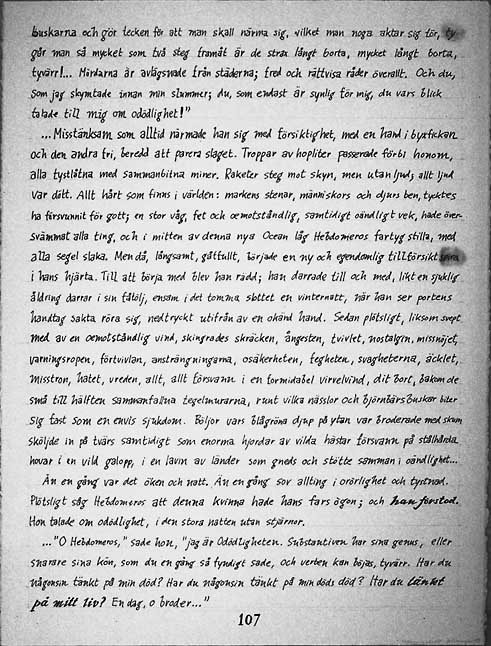 buskarna och gör tecken för att man skall närma sig, vilket man noga aktar sig för, ty
går man så mycket som två steg framåt är de strax långt borta, mycket långt borta,
tyvärr!... Mördarna är avlägsnade från städerna; fred och rättvisa råder överallt. Och du,
som jag skymtade innan min slummer; du, som endast är synlig för mig, du vars blick
talade till mig om odödlighet!"
...Misstänksam som alltid närmade han sig med försiktighet, med en hand i byxfickan
och den andra fri, beredd att parera slaget. Troppar av hopliter passerade förbi honom,
alla tystlåtna med sammanbitna miner. Raketer steg mot skyn, men utan ljud; allt ljud
var dött. Allt hårt som finns i världen: markens stenar, människors och djurs ben, tycktes
ha försvunnit för gott; en stor våg, fet och oemotståndlig, samtidigt oändligt vek, hade över-
svämmat alla ting, och i mitten av denna nya Ocean låg Hebdomeros fartyg stilla, med
alla segel slaka. Men då, långsamt, gåtfullt, började en ny och egendomlig tillförsikt
i hans hjärta. Till att börja med blev han rädd; han darrade till och med, likt en sjuklig
åldring darrar i sin fåtölj, ensam i det tomma slottet en vinternatt, när han ser portens
handtag sakta röra sig, nedtryckt utifrån av en okänd hand. Sedan plötsligt, liksom svept
med av en oemotståndlig vind, skingrades skräcken, ångesten, tvivlet, nostalgin, missnöjet,
varningsropen, förtvivlan, ansträngningarna, osäkerheten, fegheten, svagheterna, äcklet,
misstron, hatet, vreden, allt, allt försvann i en formidabel virvelvind, dit bort, bakom de
små till hälften sammanfallna tegelmurarna, runt vilka nässlor och björnbärsbuskar biter
sig fast som en envis sjukdom. Böljor vars blågröna djup på ytan var broderade med skum
sköljde in på tvärs samtidigt som enorma hjordar av vilda hästar försvann på stålhårda
hovar i en vild galopp, i en lavin av länder som gneds och stötte samman i oändlighet...
Än en gång var det öken och natt. Än en gång sov allting i orörlighet och tystnad.
Plötsligt såg Hebdomeros att denna kvinna hade hans fars ögon; och han förstod.
Hon talade om odödlighet, i den stora natten utan stjärnor.
..."O Hebdomeros," sade hon, "jag är Odödligheten. Substantiven har sina genus, eller
snarare sina kön, som du en gång så fyndigt sade, och verben kan böjas, tyvärr. Har du
någonsin tänkt på min död? Har du någonsin tänkt på min döds död? Har du tänkt
på mitt liv? En dag, o broder..."
107